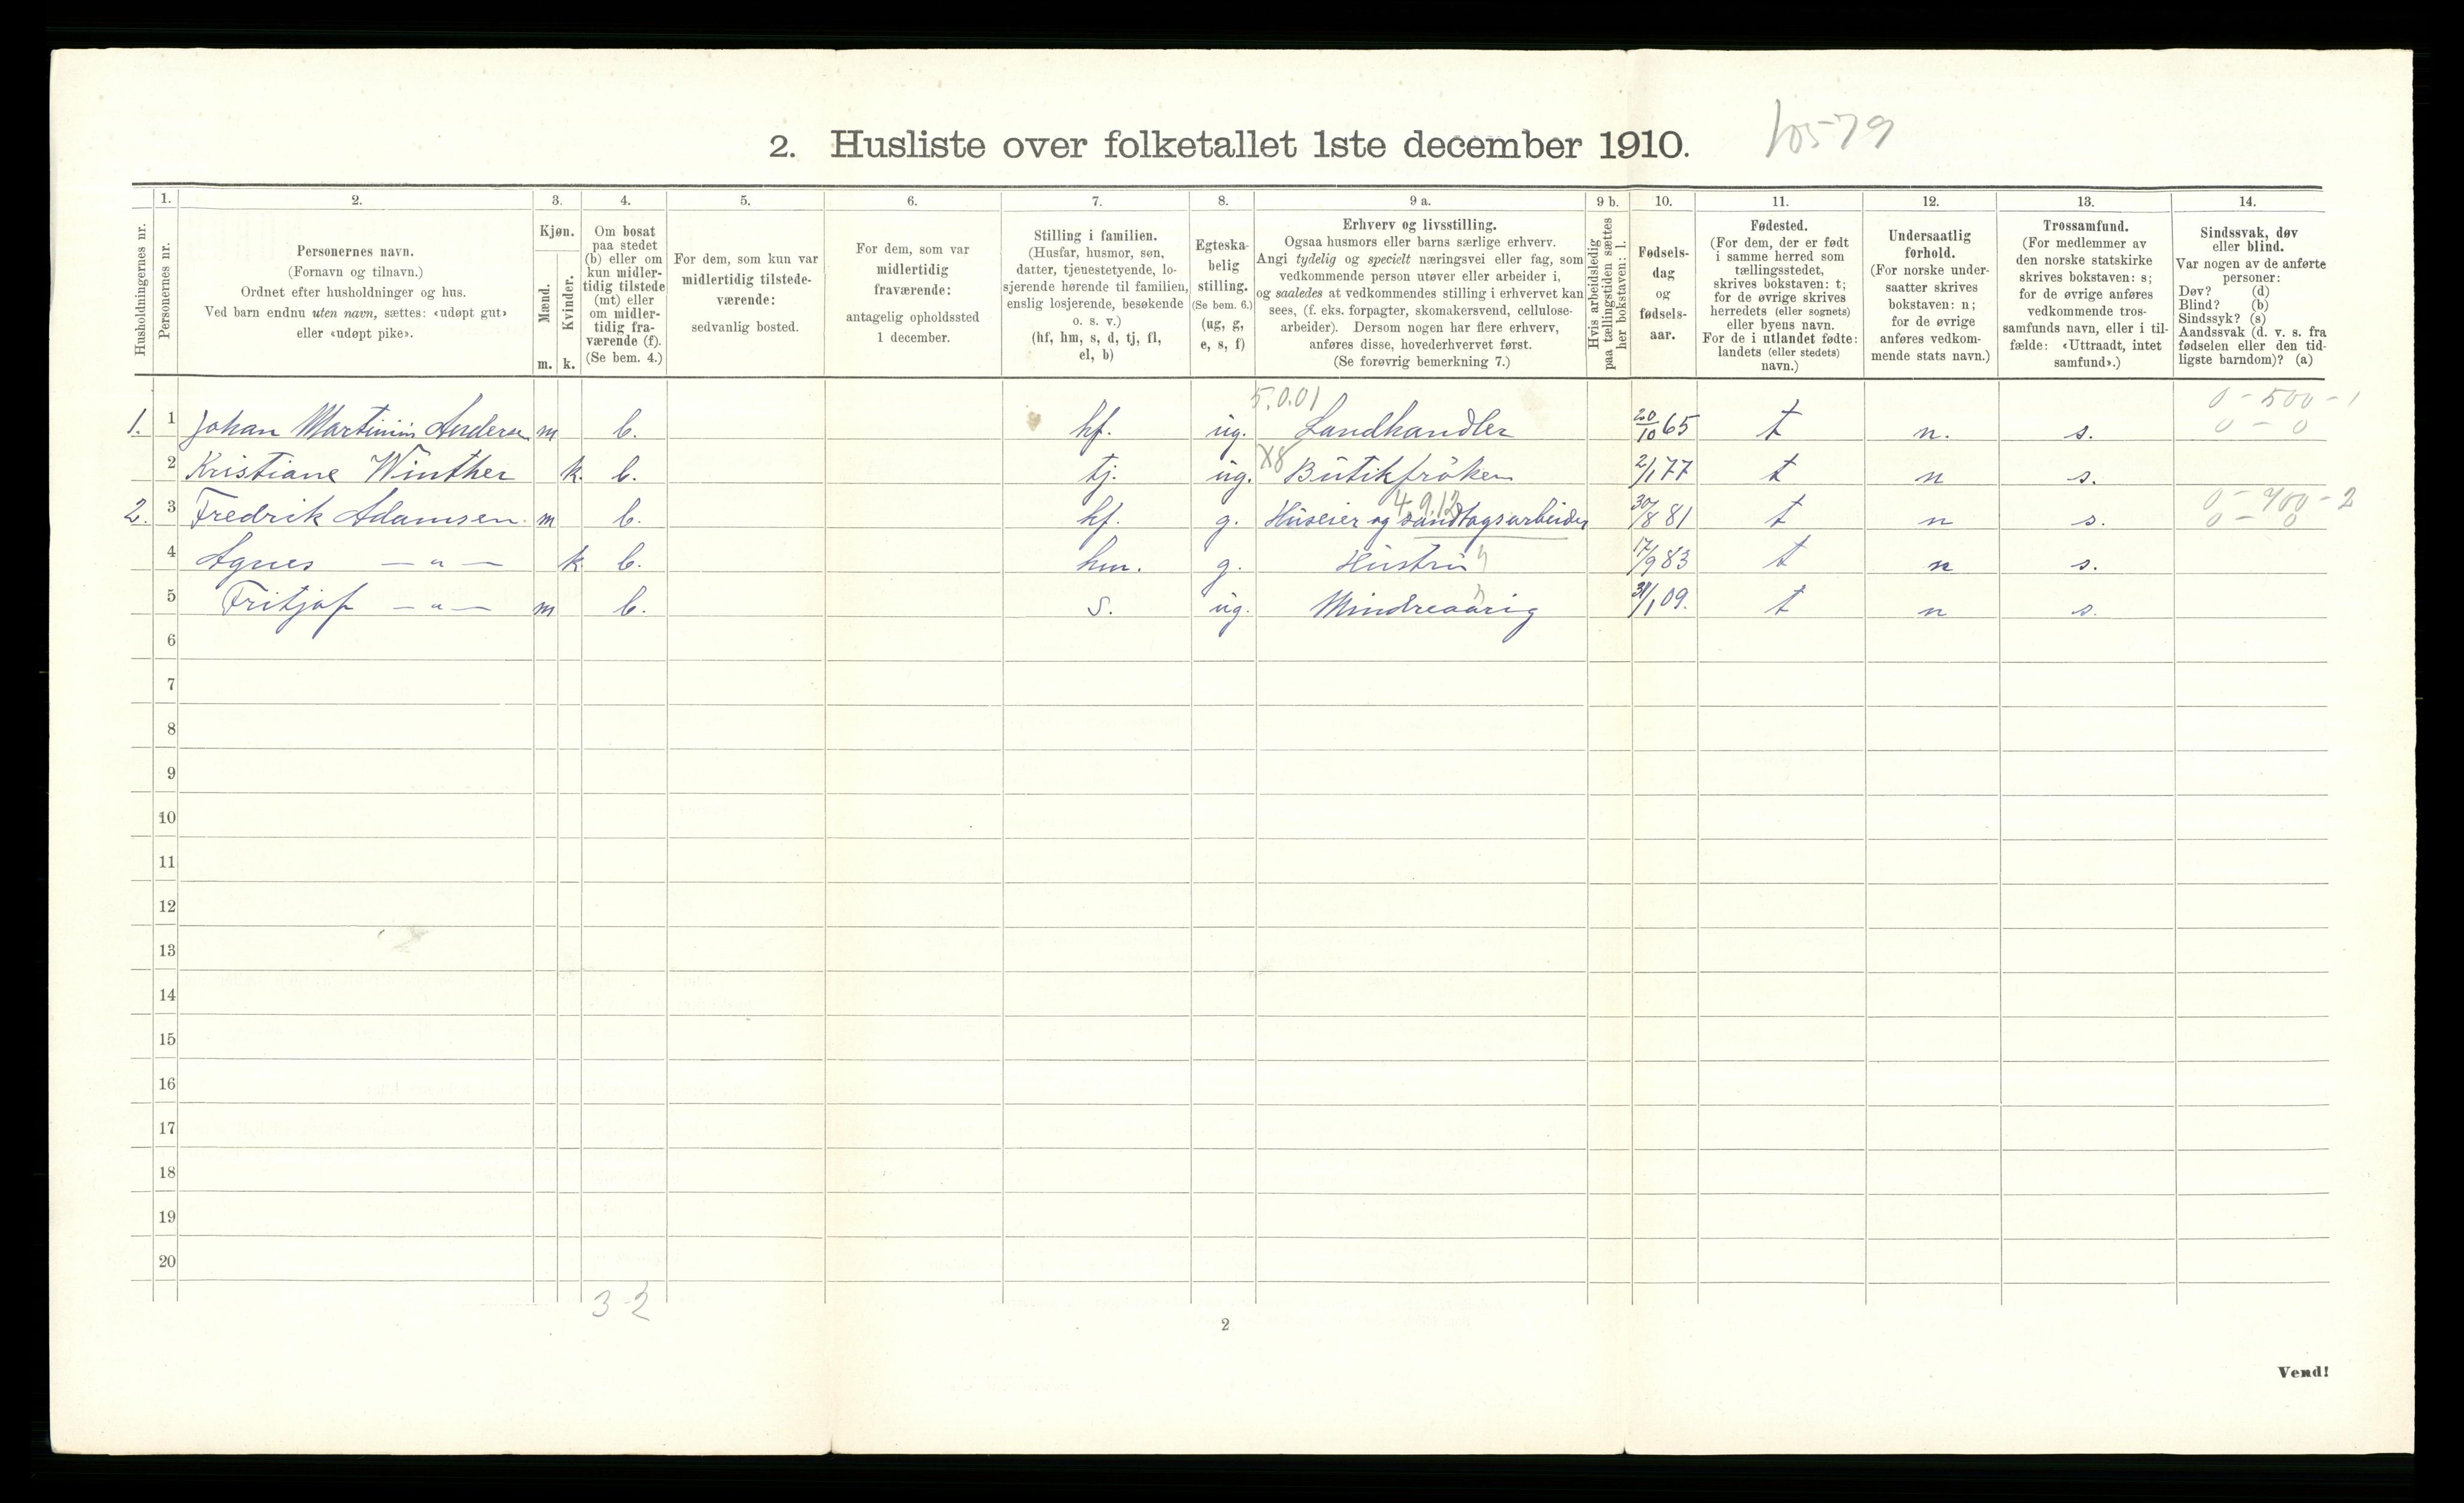 2. Husliste over folketallet 1ste december 1910. 10579
Husholdningernes nr.
1. Personernes nr.
2. Personernes navn.
(Fornavn og tilnavn.)
Ordnet efter husholdninger og hus.
Ved barn endnu uten navn, sættes: «udøpt gut»
eller «udøpt pike».
3. Kjøn.
Mænd. m.
Kvinder. k.
4. Om bosat
paa stedet
(b) eller om
kun midler-
tidig tilstede
(mt) eller
om midler-
tidig fra-
værende (f).
(Se bem. 4.)
5. For dem, som kun var
midlertidig tilstede-
værende:
sedvanlig bosted.
6. For dem, som var
midlertidig
fraværende:
antagelig opholdssted
1 december.
7. Stilling i familien.
(Husfar, husmor, søn,
datter, tjenestetyende, lo-
sjerende hørende til familien,
enslig losjerende, besøkende
o. s. v.)
(hf, hm, s, d, tj, fl,
el, b)
8. Egteska-
belig
stilling.
(Se bem. 6.)
(ug, g,
e, s, f)
9 a. Erhverv og livsstilling.
Ogsaa husmors eller barns særlige erhverv.
Angi tydelig og specielt næringsvei eller fag, som
vedkommende person utøver eller arbeider i,
og saaledes at vedkommendes stilling i erhvervet kan
sees, (f. eks. forpagter, skomakersvend, cellulose-
arbeider). Dersom nogen har flere erhverv,
anføres disse, hovederhvervet først.
(Se forøvrig bemerkning 7.)
9 b. Hvis arbeidsledig
paa tællingstiden sættes
her bokstaven: l.
10. Fødsels-
dag
og
fødsels-
aar.
11. Fødested.
(For dem, der er født
i samme herred som
tællingsstedet,
skrives bokstaven: t;
for de øvrige skrives
herredets (eller sognets)
eller byens navn.
For de i utlandet fødte:
landets (eller stedets)
navn.)
12. Undersaatlig
forhold.
(For norske under-
saatter skrives
bokstaven: n;
for de øvrige
anføres vedkom-
mende stats navn.)
13. Trossamfund.
(For medlemmer av
den norske statskirke
skrives bokstaven: s;
for de øvrige anføres
vedkommende tros-
samfunds navn, eller i til-
fælde: «Uttraadt, intet
samfund».)
14. Sindssvak, døv
eller blind.
Var nogen av de anførte
personer:
Døv? (d)
Blind? (b)
Sindssyk? (s)
Aandssvak (d. v. s. fra
fødselen eller den tid-
ligste barndom)? (a)
5.0.01 0-500-1
1. 1 Johan Martinius Andersen m b. hf. ug. Landhandler 20/10 65 t n. s. 0-0
2 Kristiane Winther k. b. tj. ug. X8 Butikfrøken 2/1 77 t n s.
4.9.12 0-400-2
2. 3 Fredrik Adamsen m b. hf. g. Huseier og sandtagsarbeider 30/8 81 t n s. 0-0
4 Agnes —"— k b. hm. g. Hustru 17/9 83 t n s.
5 Fritjof —"— m b. s. ug. Mindreaarig 31/1 09. t n s.
6
7
8
9
10
11
12
13
14
15
16
17
18
19
20
3-2
2
Vend!